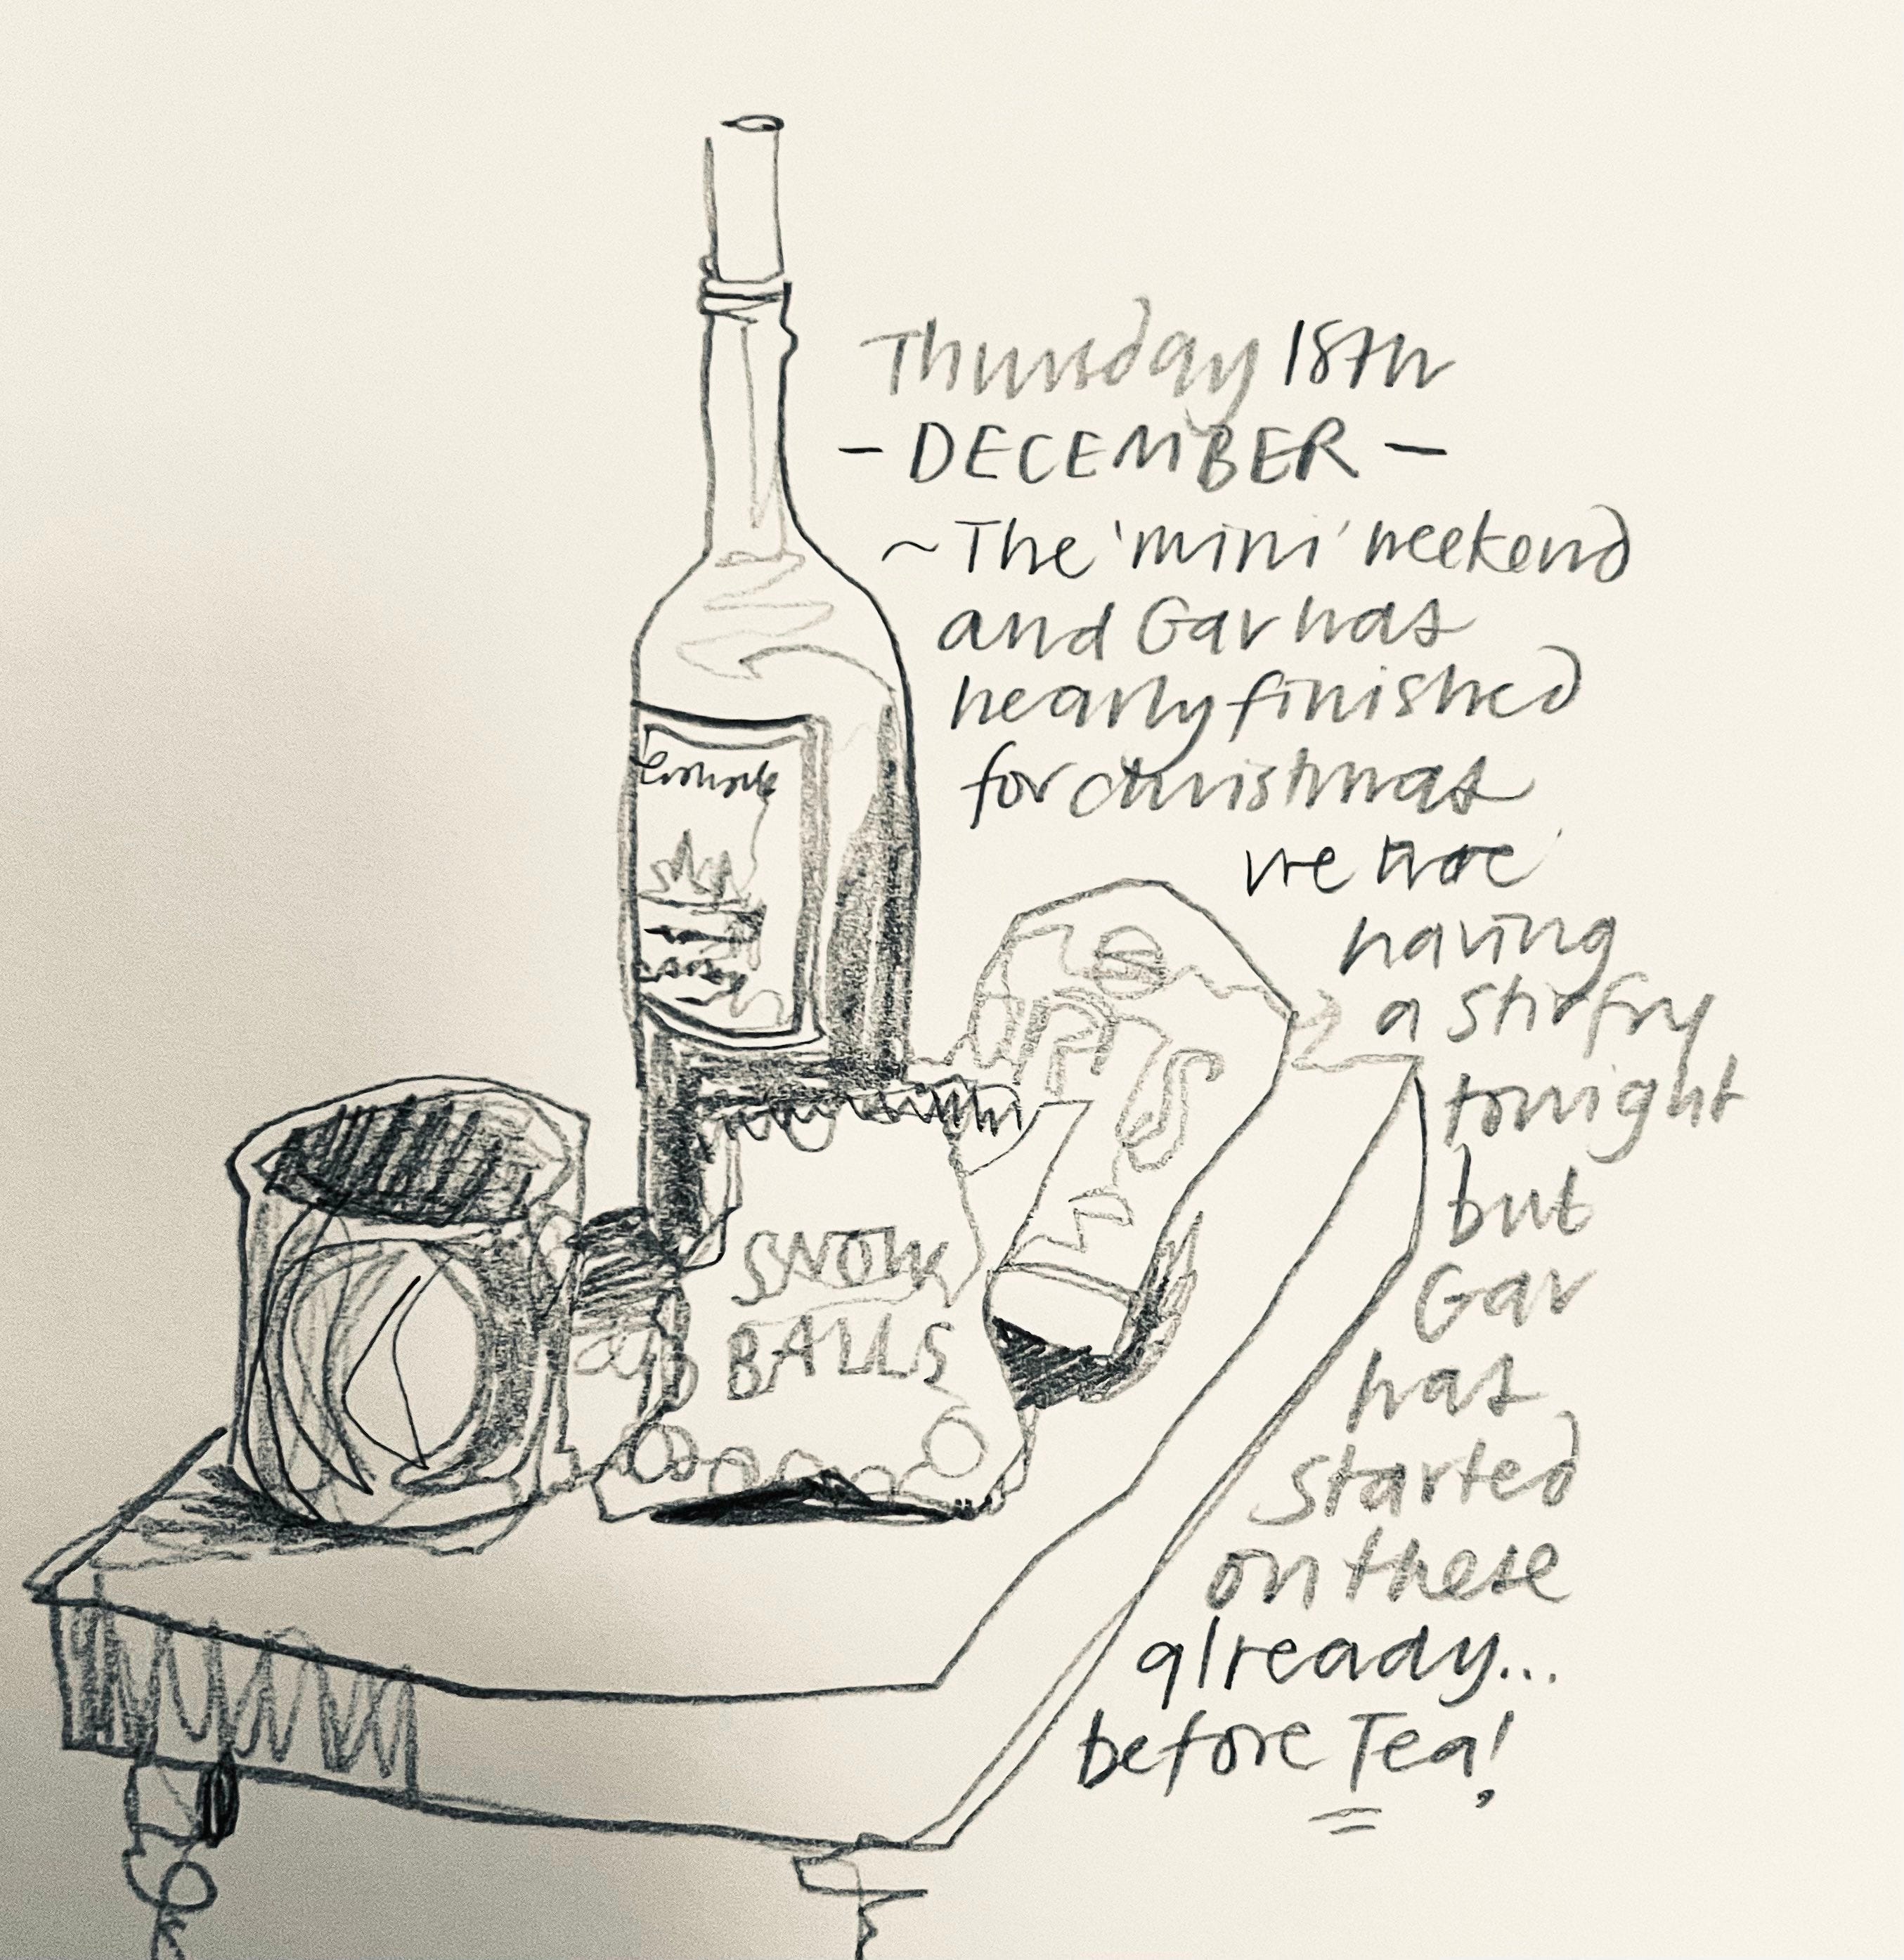 Thursday 18th
- DECEMBER -
~ The 'mini' weekend
and Gav has
nearly finished
for christmas
we
having
a stirfry
tonight
but
Gav
has
started
on these
already...
before Tea!
SNOW
BALLS